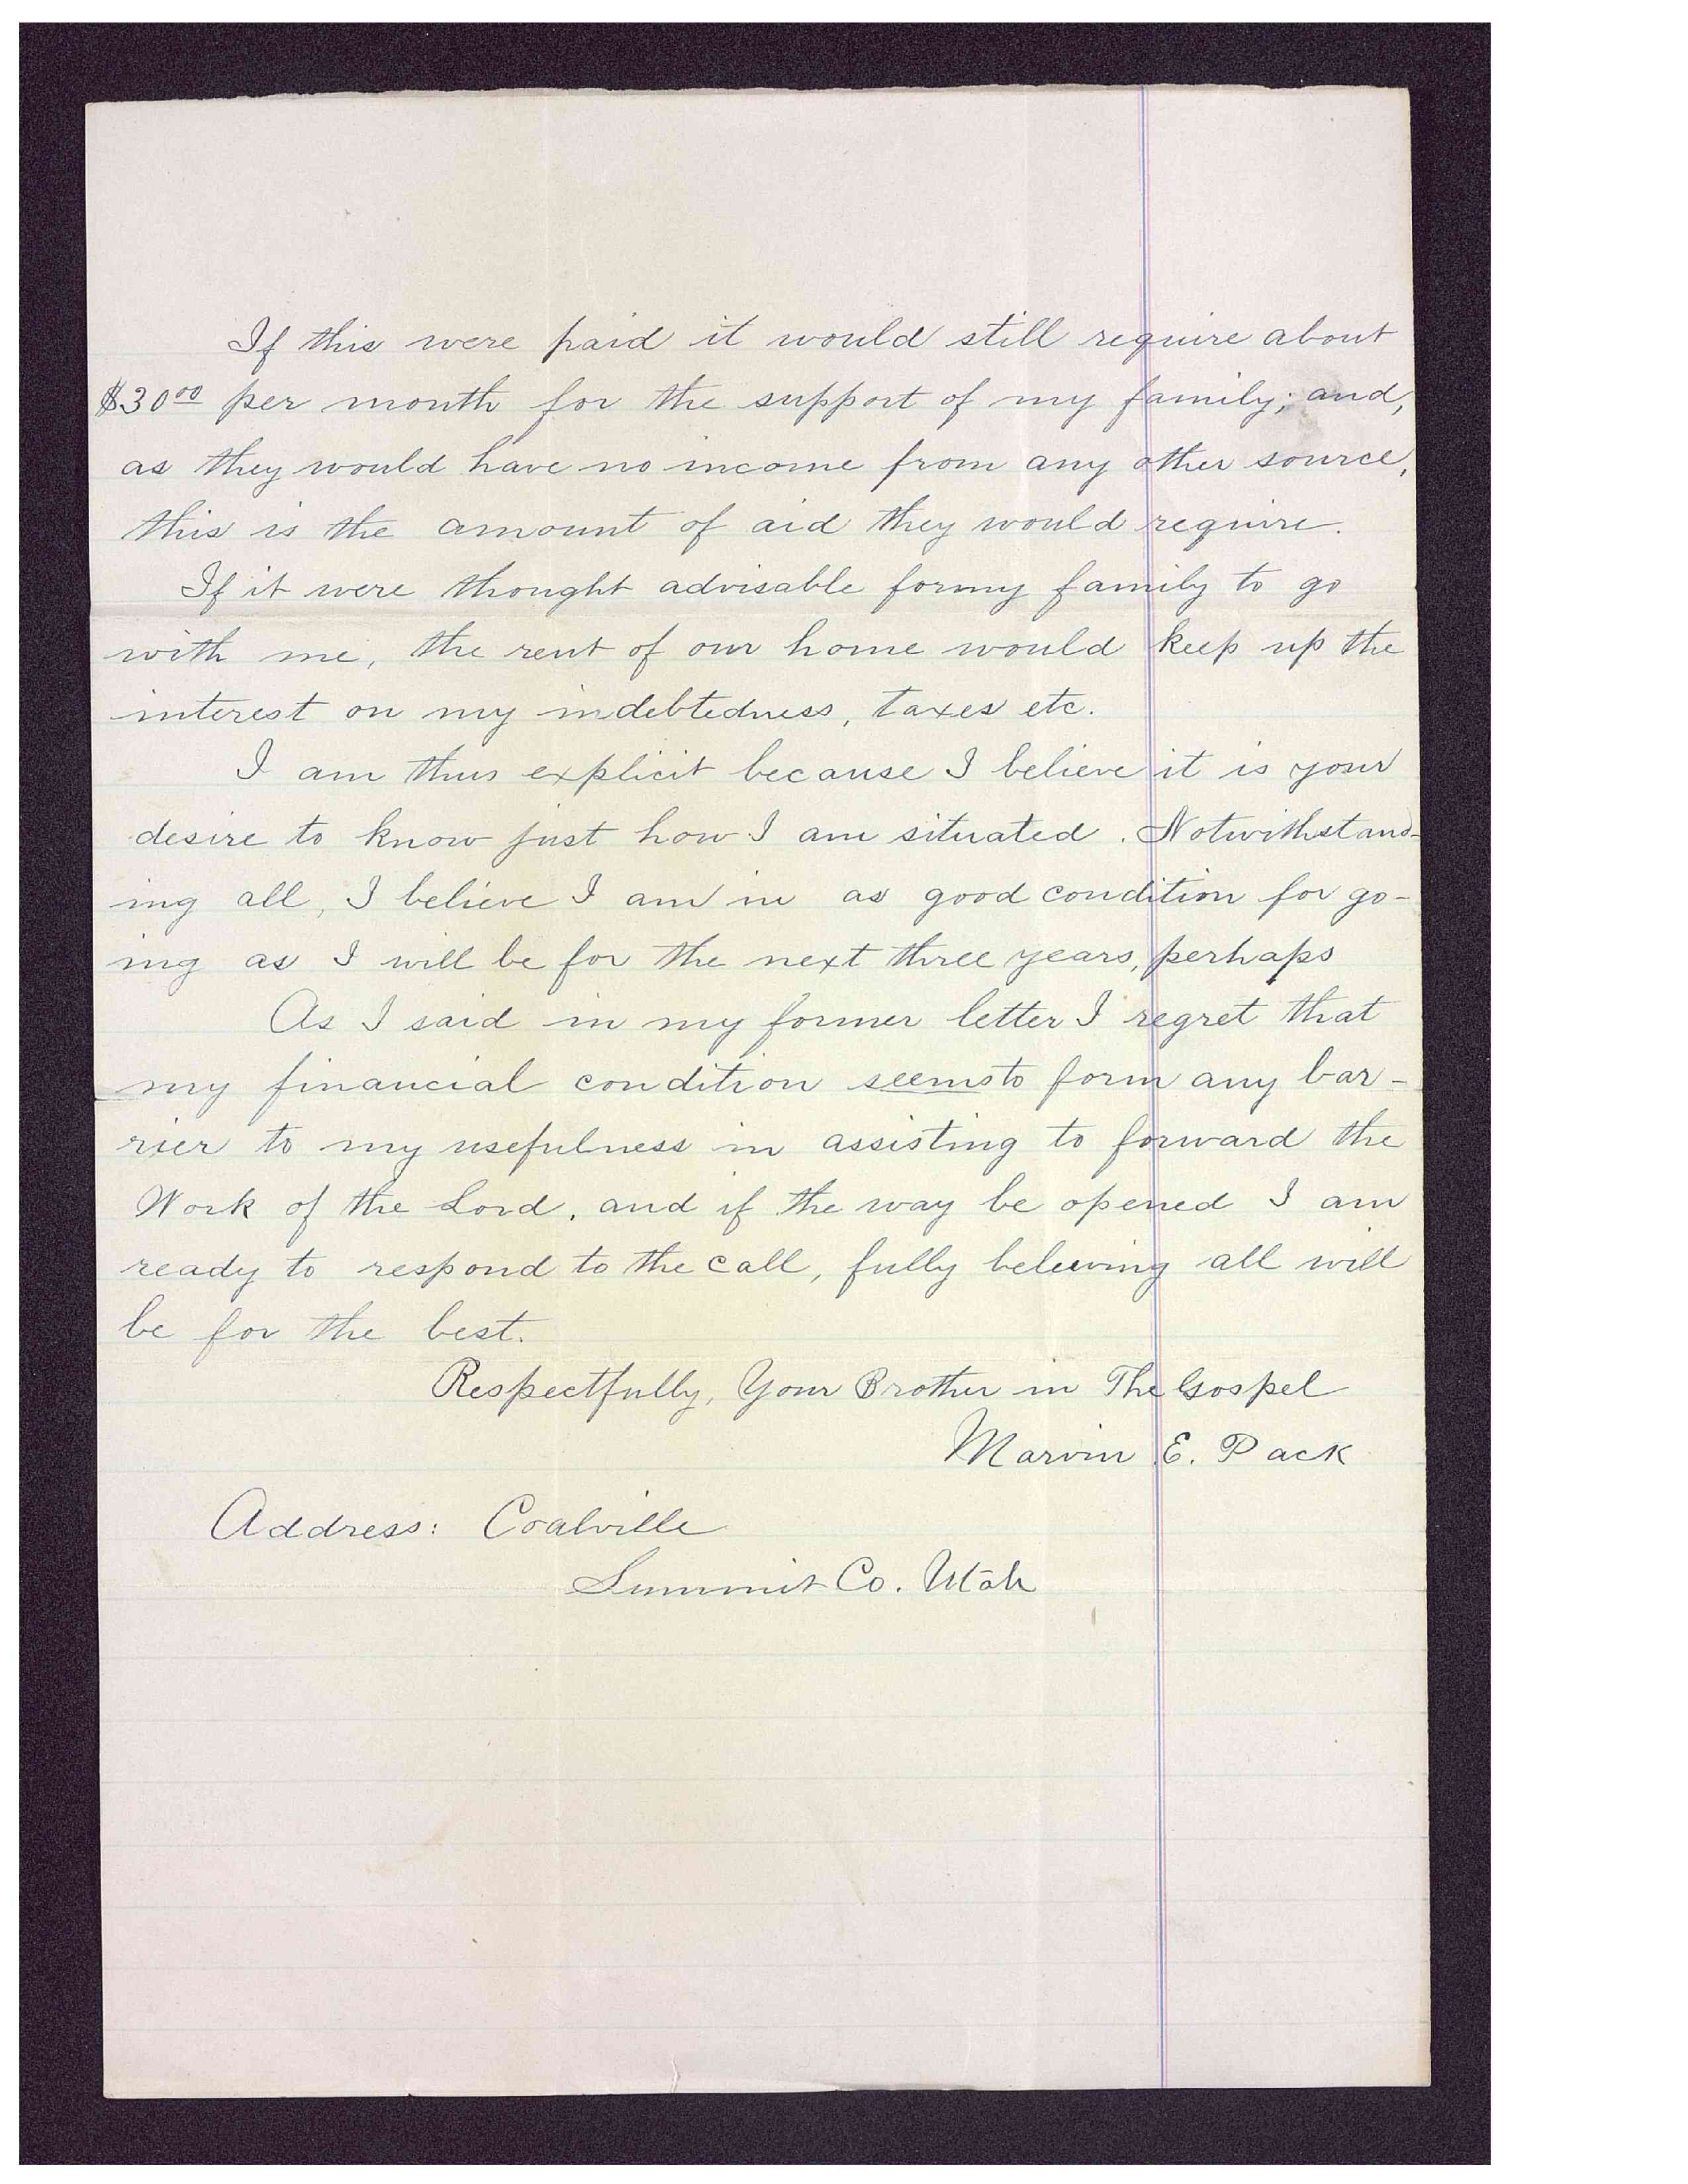 If this were paid it would still require about
$30.00 per month for the support of my family; and,
as they would have no income from any other source,
this is the amount of aid they would require.
If it were thought advisable for my family to go
with me, the rent of our home would keep up the
interest on my indebtedness, taxes etc.
I am thus explicit because I believe it is your
desire to know just how I am situated. Notwithstand-
ing all, I believe I am in as good condition for go-
ing as I will be for the next three years, perhaps
As I said in my former letter I regret that
my financial condition seems to form any bar-
rier to my usefulness in assisting to forward the
Work of the Lord, and if the way be opened I am
ready to respond to the call, fully beleiving all will
be for the best.
Respectfully, Your Brother in The Gospel
Marvin E. Pack
Address: Coalville
Summit Co. Utah